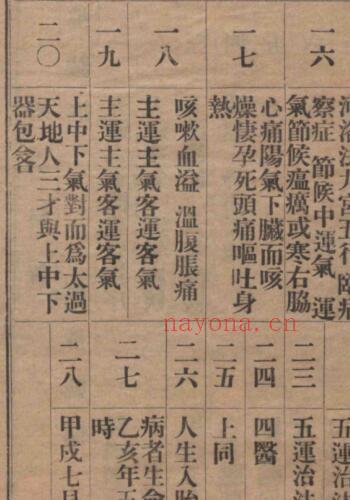 一六
察症 節候中運氣 運
氣節候瘟癘或寒右脇
一七
心痛陽氣下臟而咳
燥悽孕死頭痛嘔吐身
熱
一八
咳嗽血溢 溫腹脹痛
主運主氣客運客氣
一九
主運主氣客運客氣
二〇
上中下氣對而爲太過
天地人三才與上中下
器包含
五運治
二三
五運治法
二四
四醫
二五
上同
二六
人生入胎
二七
病者生命
乙亥年五
時
二八
甲戍七月
nayona.cn